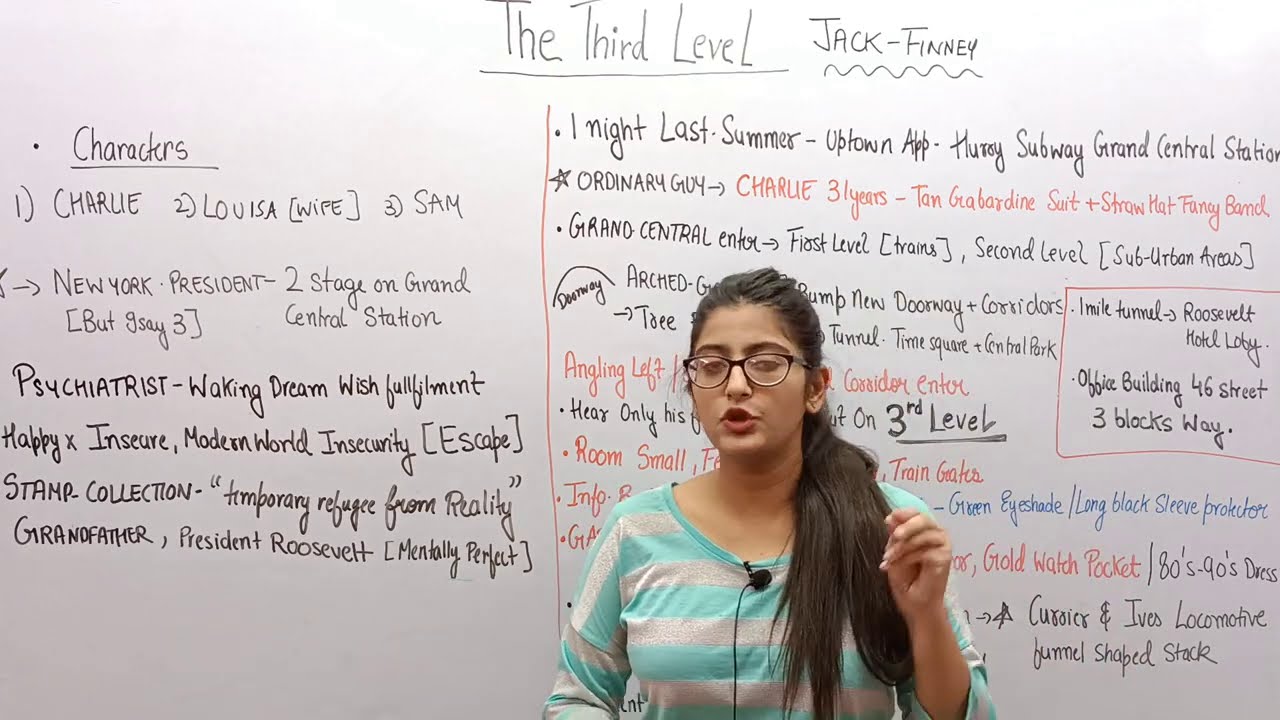 The Third Level JACK-FINNEY
• Characters
1) CHARLIE 2) LOUISA [WIFE] 3) SAM
→ NEW YORK • PRESIDENT - 2 Stage on Grand
[But I say 3] Central Station
PSYCHIATRIST - Waking Dream Wish fullfilment
Happy x Insecure, Modern World Insecurity [Escape]
STAMP COLLECTION - "temporary refugee from Reality"
GRANDFATHER, President Roosevelt [Mentally Perfect]
• 1 night Last Summer - Uptown App - Hurry Subway Grand Central Station
☆ ORDINARY GUY → CHARLIE 31 years - Tan Gabardine Suit + Straw Hat Fancy Band
• GRAND CENTRAL enter → First Level [trains], Second Level [Sub-Urban Areas]
Doorway ARCHED- Bump New Doorway + Corridors
→ Tree Tunnel. Time square + Central Park
Angling Left Corridor enter
• Hear Only his On 3rd Level
• Room Small, Train Gates
• Info. - Green Eyeshade / Long black Sleeve protector
Gold Watch Pocket / 80's-90's Dress
→ ☆ Currier & Ives Locomotive
funnel Shaped Stack
• 1 mile tunnel → Roosevelt
Hotel Loby.
• Office Building 46 street
3 blocks Way.